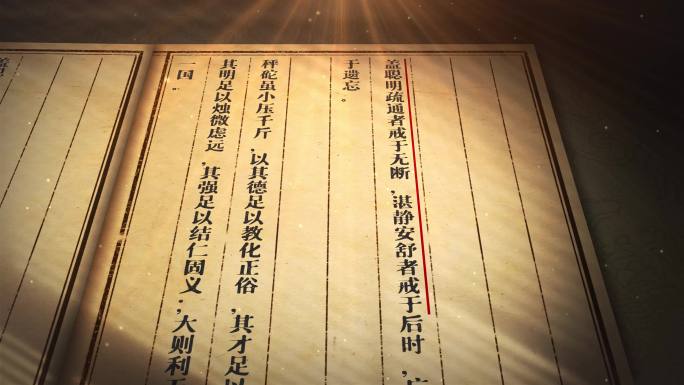 盖聪明疏通者戒于无断，湛静安舒者戒于后时，
于遗忘。
秤砣虽小压千斤，以其德足以教化正俗，其才足以
其明足以烛微虑远，其强足以结仁固义，大则利
一国。